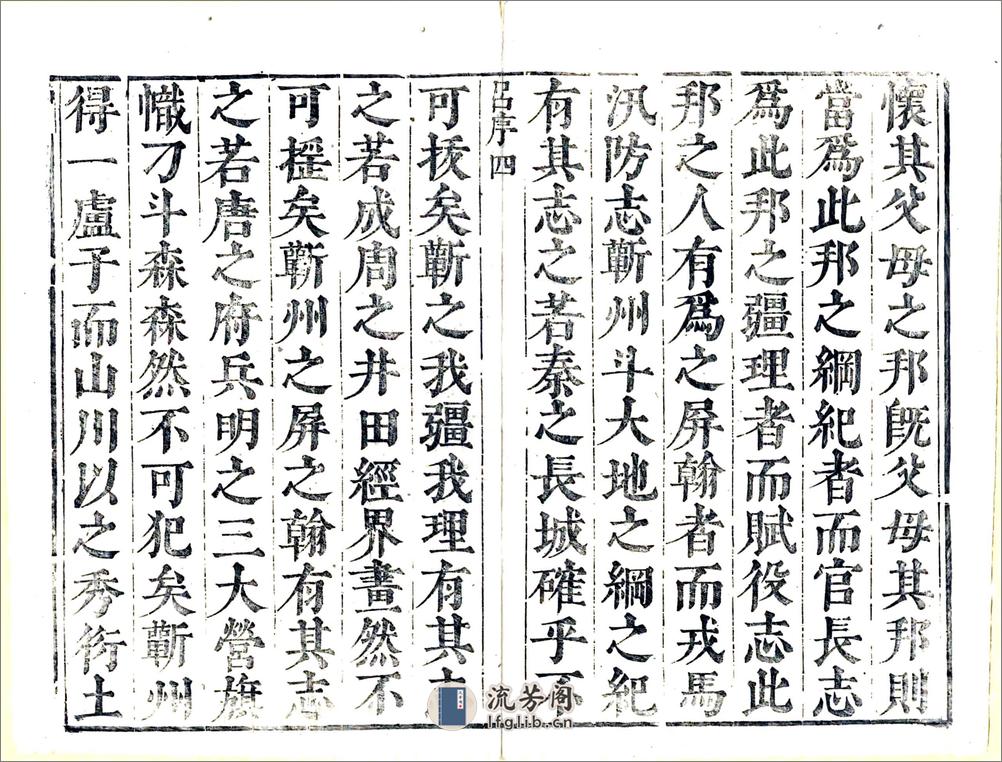 懷其父母之邦旣父母其邦則
當爲此邦之綱紀者而官長志
爲此邦之疆理者而賦役志此
邦之人有爲之屏翰者而戎馬
汛防志蘄州斗大地之綱之紀
有其志之若秦之長城確乎不
呂序四
可拔矣蘄之我疆我理有其志
之若成周之井田經界畫然不
可摇矣蘄州之屏之翰有其志
之若唐之府兵明之三大營旗
幟刁斗森森然不可犯矣蘄州
得一盧子而山川以之秀衍土
流芳阁
lfglib.cn